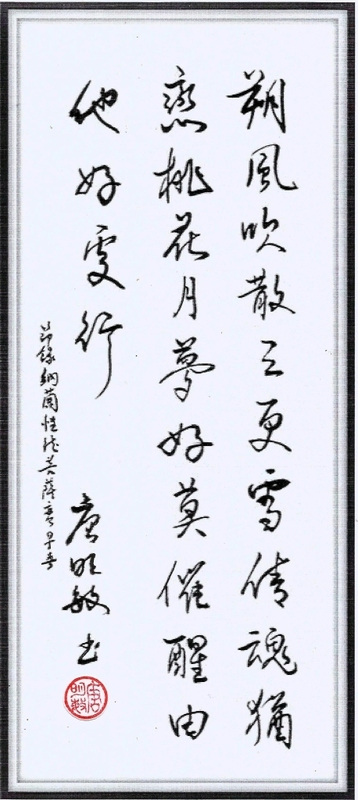 朔風吹散三更雪倩魂猶
戀桃花月夢好莫催醒由
他好處行
節錄納蘭性德菩薩蠻早春
唐明敏书
唐明敏